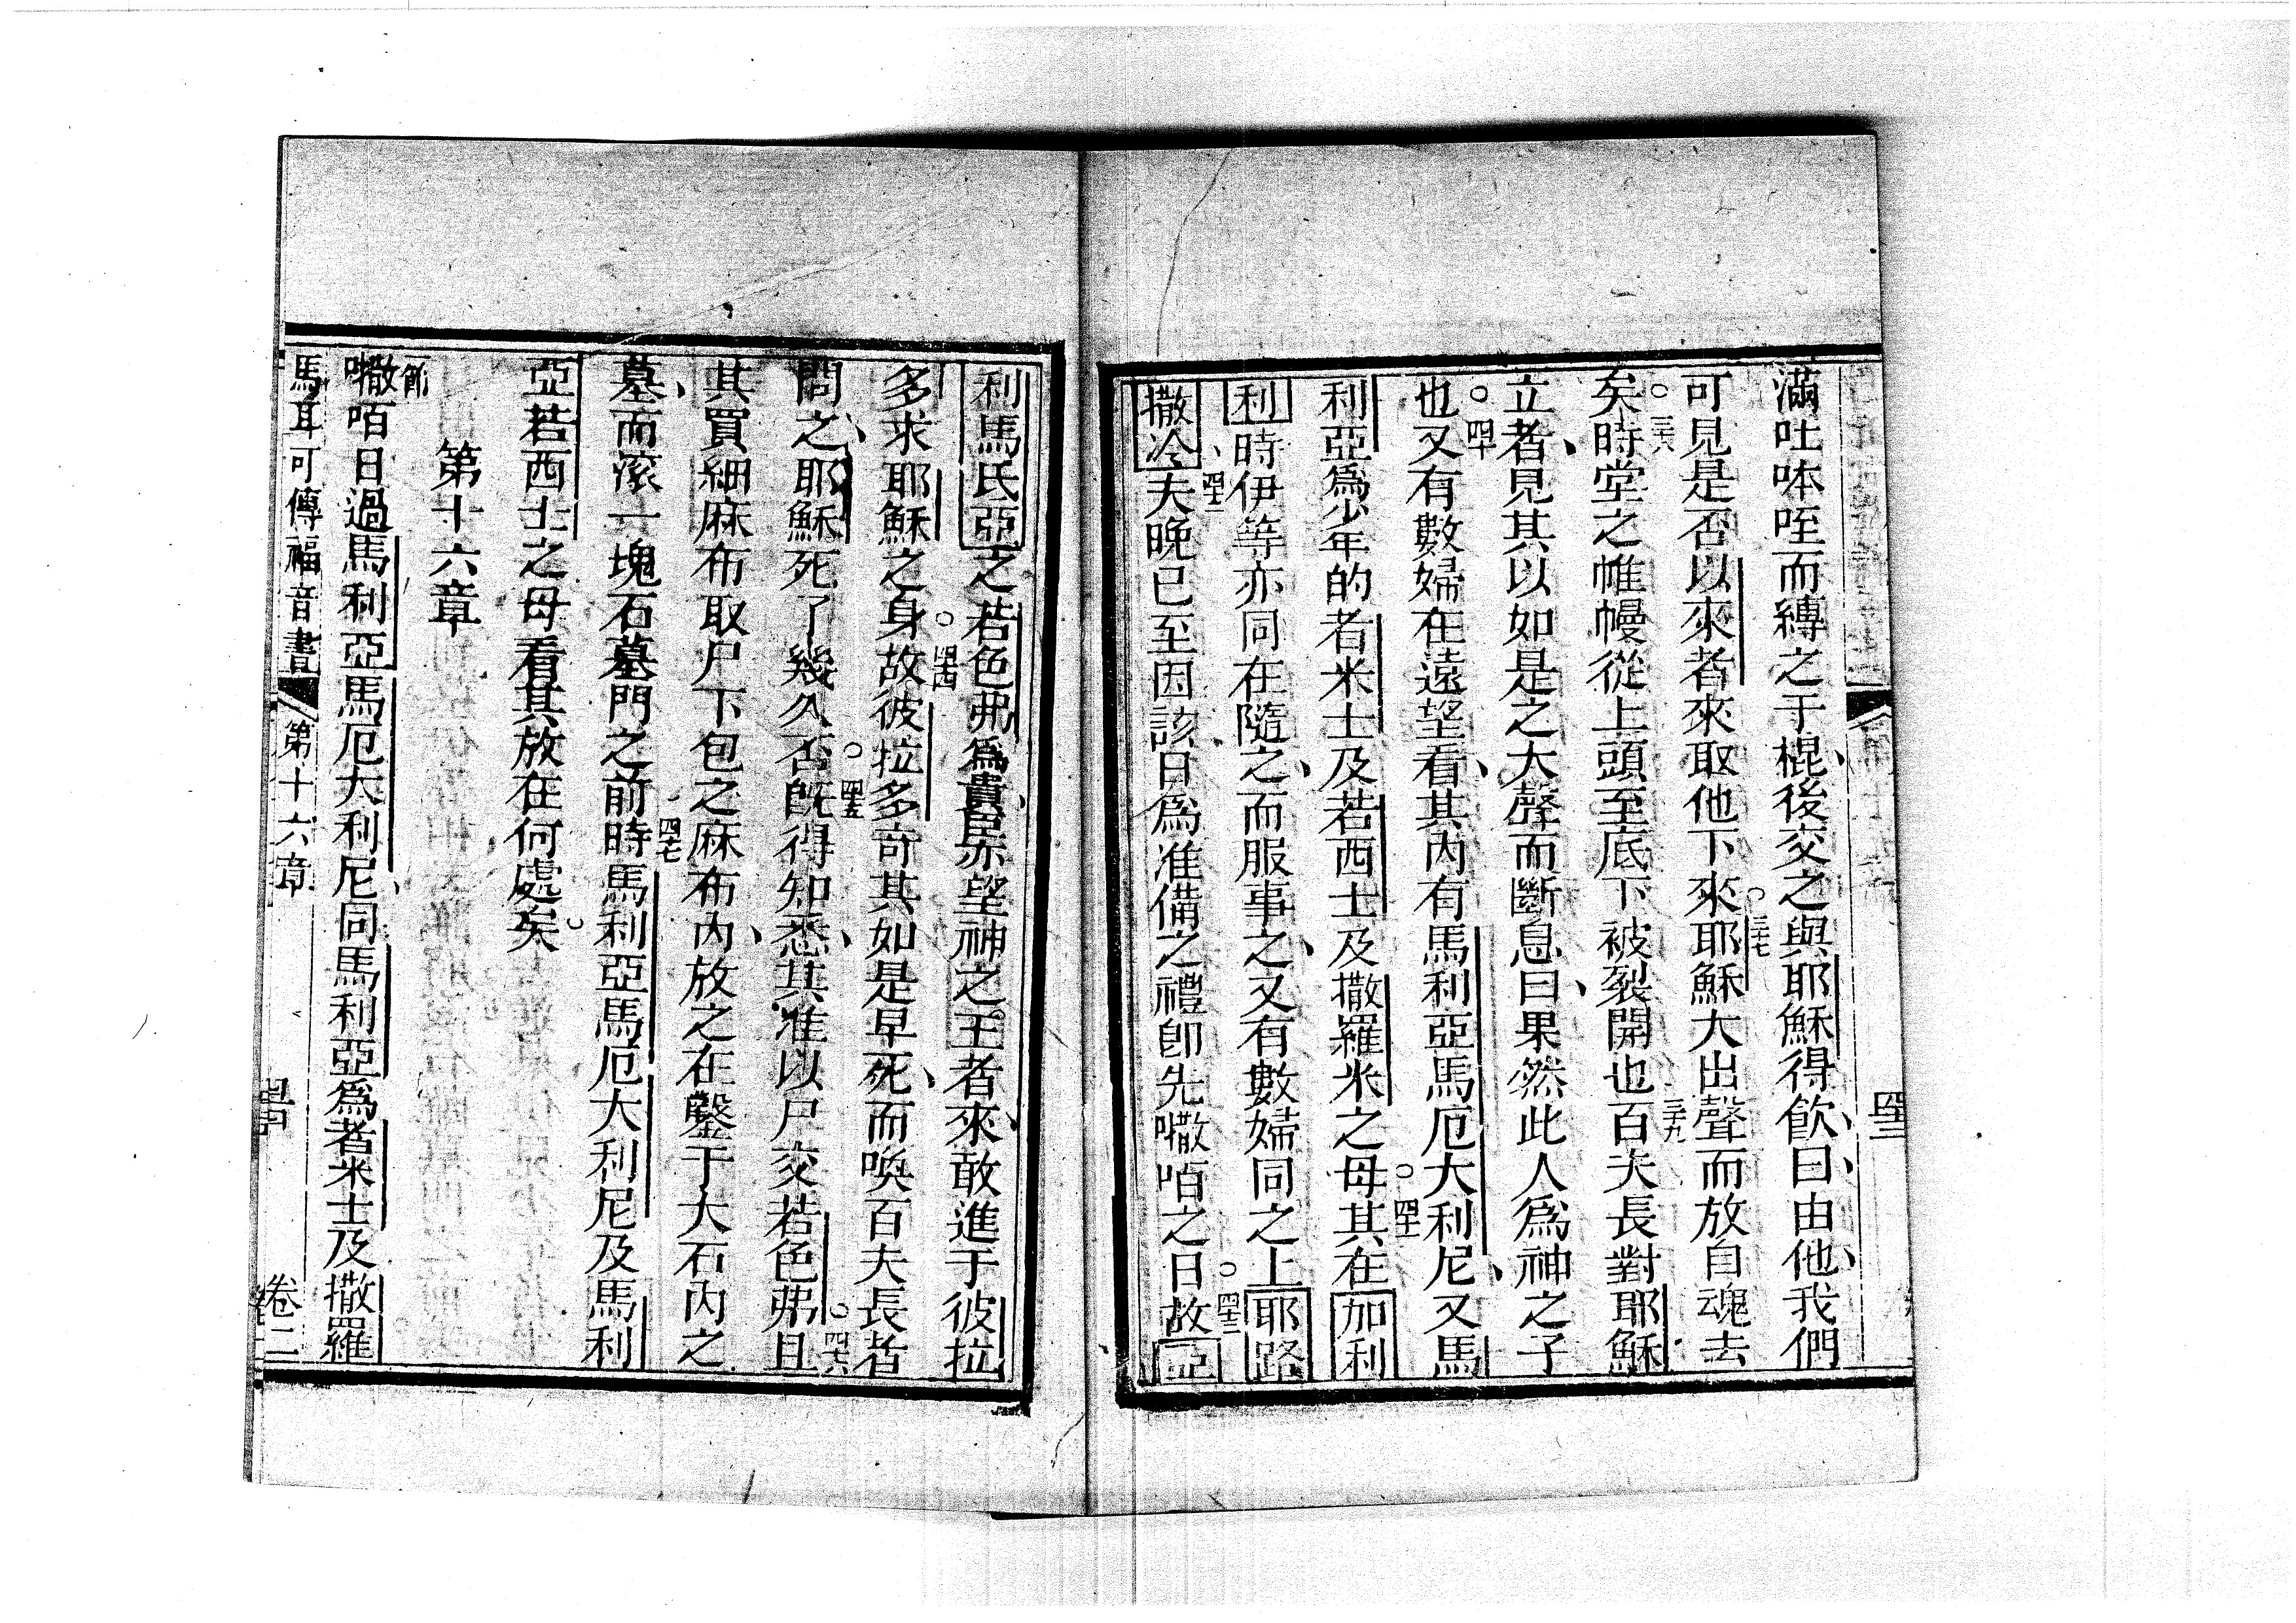 滿吐呠咥而縳之于棍後交之與耶穌得飲曰由他我們
可見是否以來者來取他下來。三十七耶穌大出聲而放自魂去
矣。三十八時堂之帷幔從上頭至底下被裂開也三十九百夫長對耶穌
立者見其以如是之大聲而斷息曰果然此人為神之子
也。四十又有數婦在遠望看其內有馬利亞馬厄大利尼又馬
利亞為少年的者米士及若西士及撒羅米之母。四十一其在加利
利時伊等亦同在隨之而服事之又有數婦同之上耶路
撒冷四十二夫晚已至因該日為准備之禮卽先㗔咟之日。四十三故亞
利馬氏亞之若色弗為貴臣亦望神之王者來敢進于彼拉
多求耶穌之身。四十四故彼拉多奇其如是早死而喚百夫長者
問之耶穌死了幾久否。四十五旣得知悉其准以尸交若色弗。四十六且
其買細麻布取尸下包之麻布內放之在鑿于大石內之
墓而滾一塊石墓門之前四十七時馬利亞馬厄大利尼及馬利
亞若西士之母看其放在何處矣。
第十六章
一節㗔咟日過馬利亞馬厄大利尼同馬利亞為者米士及撒羅
馬耳可傳福音書 第十六章 四十四 卷二